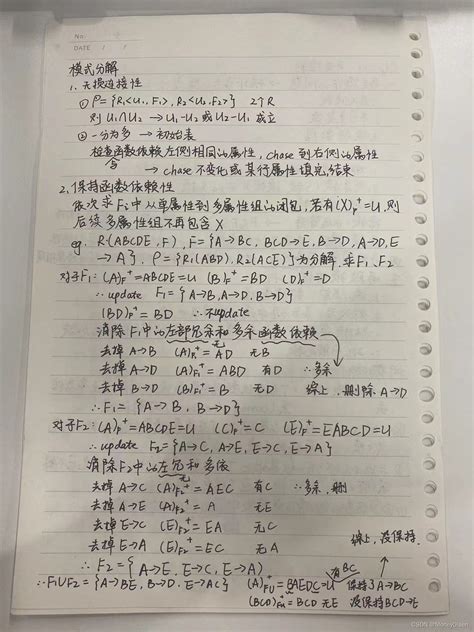 No.
DATE / /
模式分解
1. 无损连接性
① ρ={R₁<U₁,F₁>, R₂<U₂,F₂>} 2个R
则 U₁∩U₂→U₁-U₂ 或 U₂-U₁ 成立
② 一分为多 → 初始表
检查函数依赖左侧相同的属性, chase 到右侧的属性
含 → chase 不变化或某行属性填充结束
2. 保持函数依赖性
依次求 Fi 中从单属性到多属性组的闭包, 若有(X)F⁺=U, 则
后续多属性组不再包含X
eg. R(ABCDE, F), F={A→BC, BCD→E, B→D, A→D, E
→A}, ρ={R₁(ABD), R₂(ACE)}为分解, 求F₁、F₂
对于F₁: (A)F⁺=ABCDE=U (B)F⁺=BD (D)F⁺=D
∴ update F₁={A→B, A→D, B→D}
(BD)F⁺=BD ∴不update
消除F₁中的左部冗余和多余函数依赖
无
去掉 A→B (A)F₁⁺=AD 无B
去掉 A→D (A)F₁⁺=ABD 有D ∴多余
去掉 B→D (B)F₁⁺=B 无D 综上, 删除 A→D
∴F₁={A→B, B→D}
对于F₂: (A)F⁺=ABCDE=U (C)F⁺=C (E)F⁺=EABCD=U
∴ update F₂={A→C, A→E, E→C, E→A}
消除F₂中的左冗和多依
无
去掉 A→C (A)F₂⁺=AEC 有C ∴多余, 删
去掉 A→E (A)F₂⁺=A 无E
去掉 E→C (E)F₂⁺=EA 无C
去掉 E→A (E)F₂⁺=EC 无A
综上, 没保持.
∴F₂={A→E, E→C, E→A}
有BC
∴F₁∪F₂={A→BE, B→D, E→AC} (A)FU⁺=BAEDC=U 保持了A→BC
(BCD)FU⁺=BCD 无E 没保持BCD→E